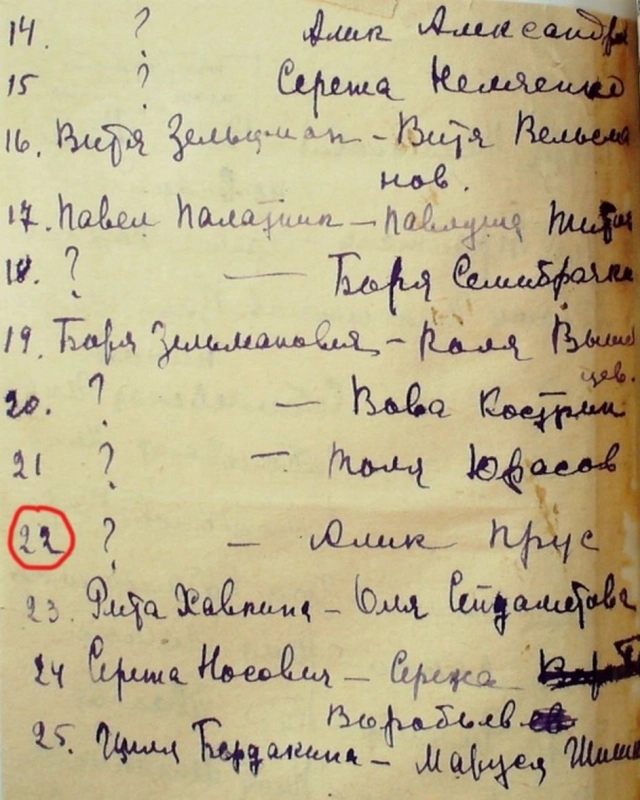 14. ? Алик Александро
15 ? Сережа Немяенко
16. Витя Зельцман - Витя Вельсма
нов.
17. Павел Палатник - Павлуша
18. ? — Боря Семибрачн
19. Боря Зельманович - Коля Выше
цев.
20. ? — Вова Кострин
21 ? — Толя Юрасов
22 ? — Алик Прус
23. Рита Хавкина - Оля Сейдаметова
24 Сережа Носович - Сережа
Воробьев
25. Циля Бердакина - Маруся Шишк